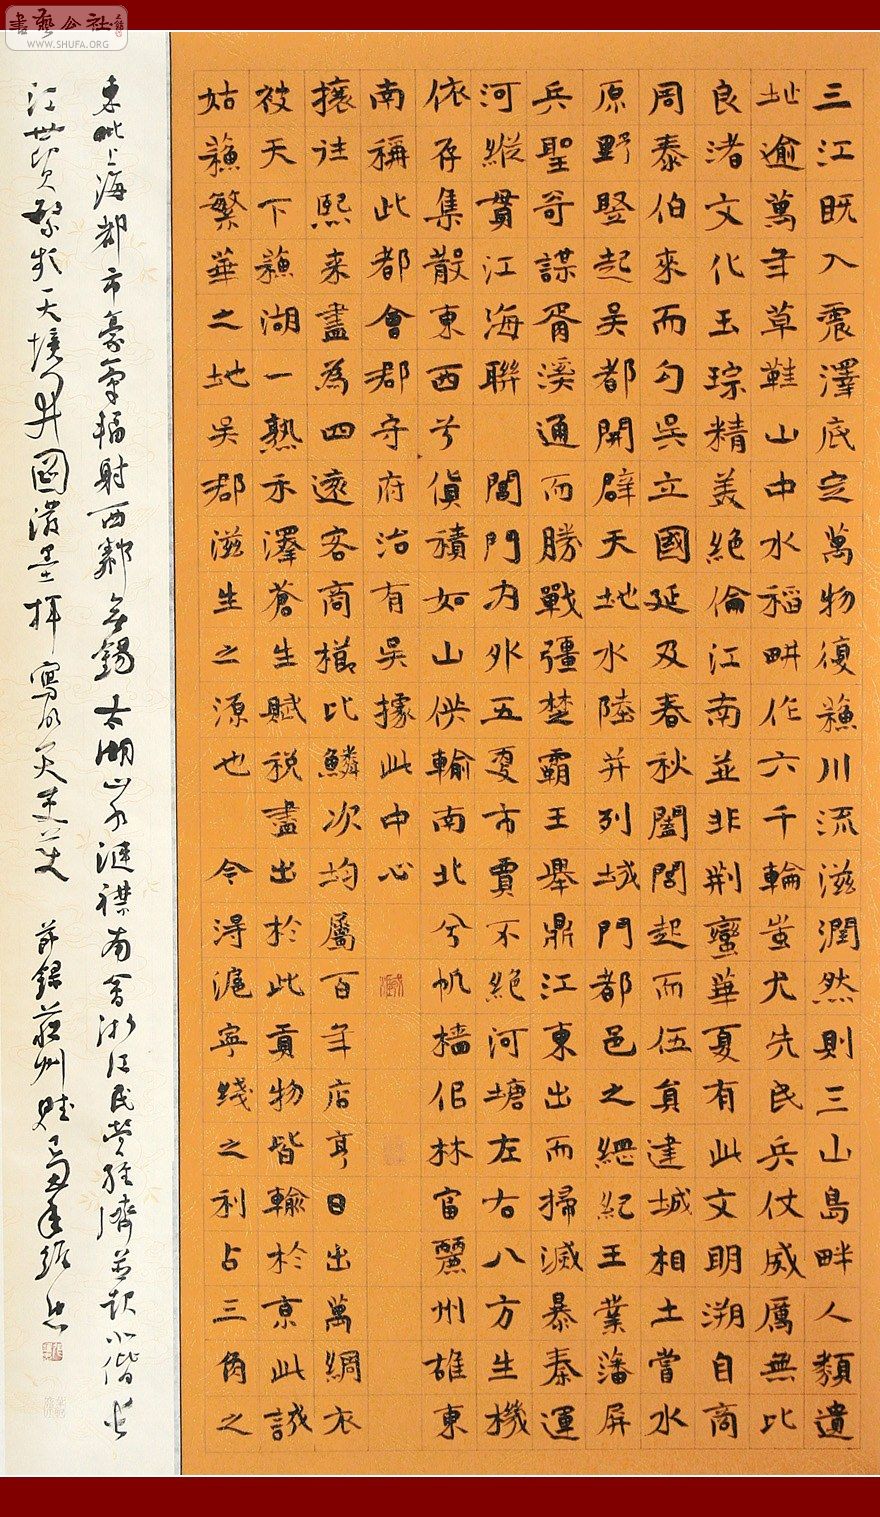 三江既入震澤底定萬物復蘇川流滋潤然則三山島畔人類遺
址逾萬年草鞋山中水稻畊作六千輪蚩尤先民兵仗威厲無比
良渚文化玉琮精美絶倫江南並非荆蠻華夏有此文明溯自商
周泰伯來而勾吴立國延及春秋闔閭起而伍員建城相土嘗水
原野竪起吴都開辟天地水陸并列城門都邑之綱紀王業藩屏
兵聖奇謀胥溪通而勝戰彊楚霸王舉鼎江東出而掃滅暴秦運
河縱貫江海聯 閶門内外五更市賈不絶河塘左右八方生機
依存集散東西兮貨積如山供輸南北兮帆檣侣林富麗州雄東
南稱此都會郡守府治有吴據此中心
攘往熙来盡為四遠客商櫛比鱗次均屬百年店亨日出萬綢衣
被天下蘇湖一熟禾澤蒼生賦税盡出於此貢物皆輸於京此誠
姑蘇繁華之地吴郡滋生之源也 令淂滬寧綫之利占三角之
東毗上海都市豪氣輻射西鄰無錫太湖山水漣襟南會浙江民營經濟並起
節録蘇州賦
書藝公社
WWW.SHUFA.ORG